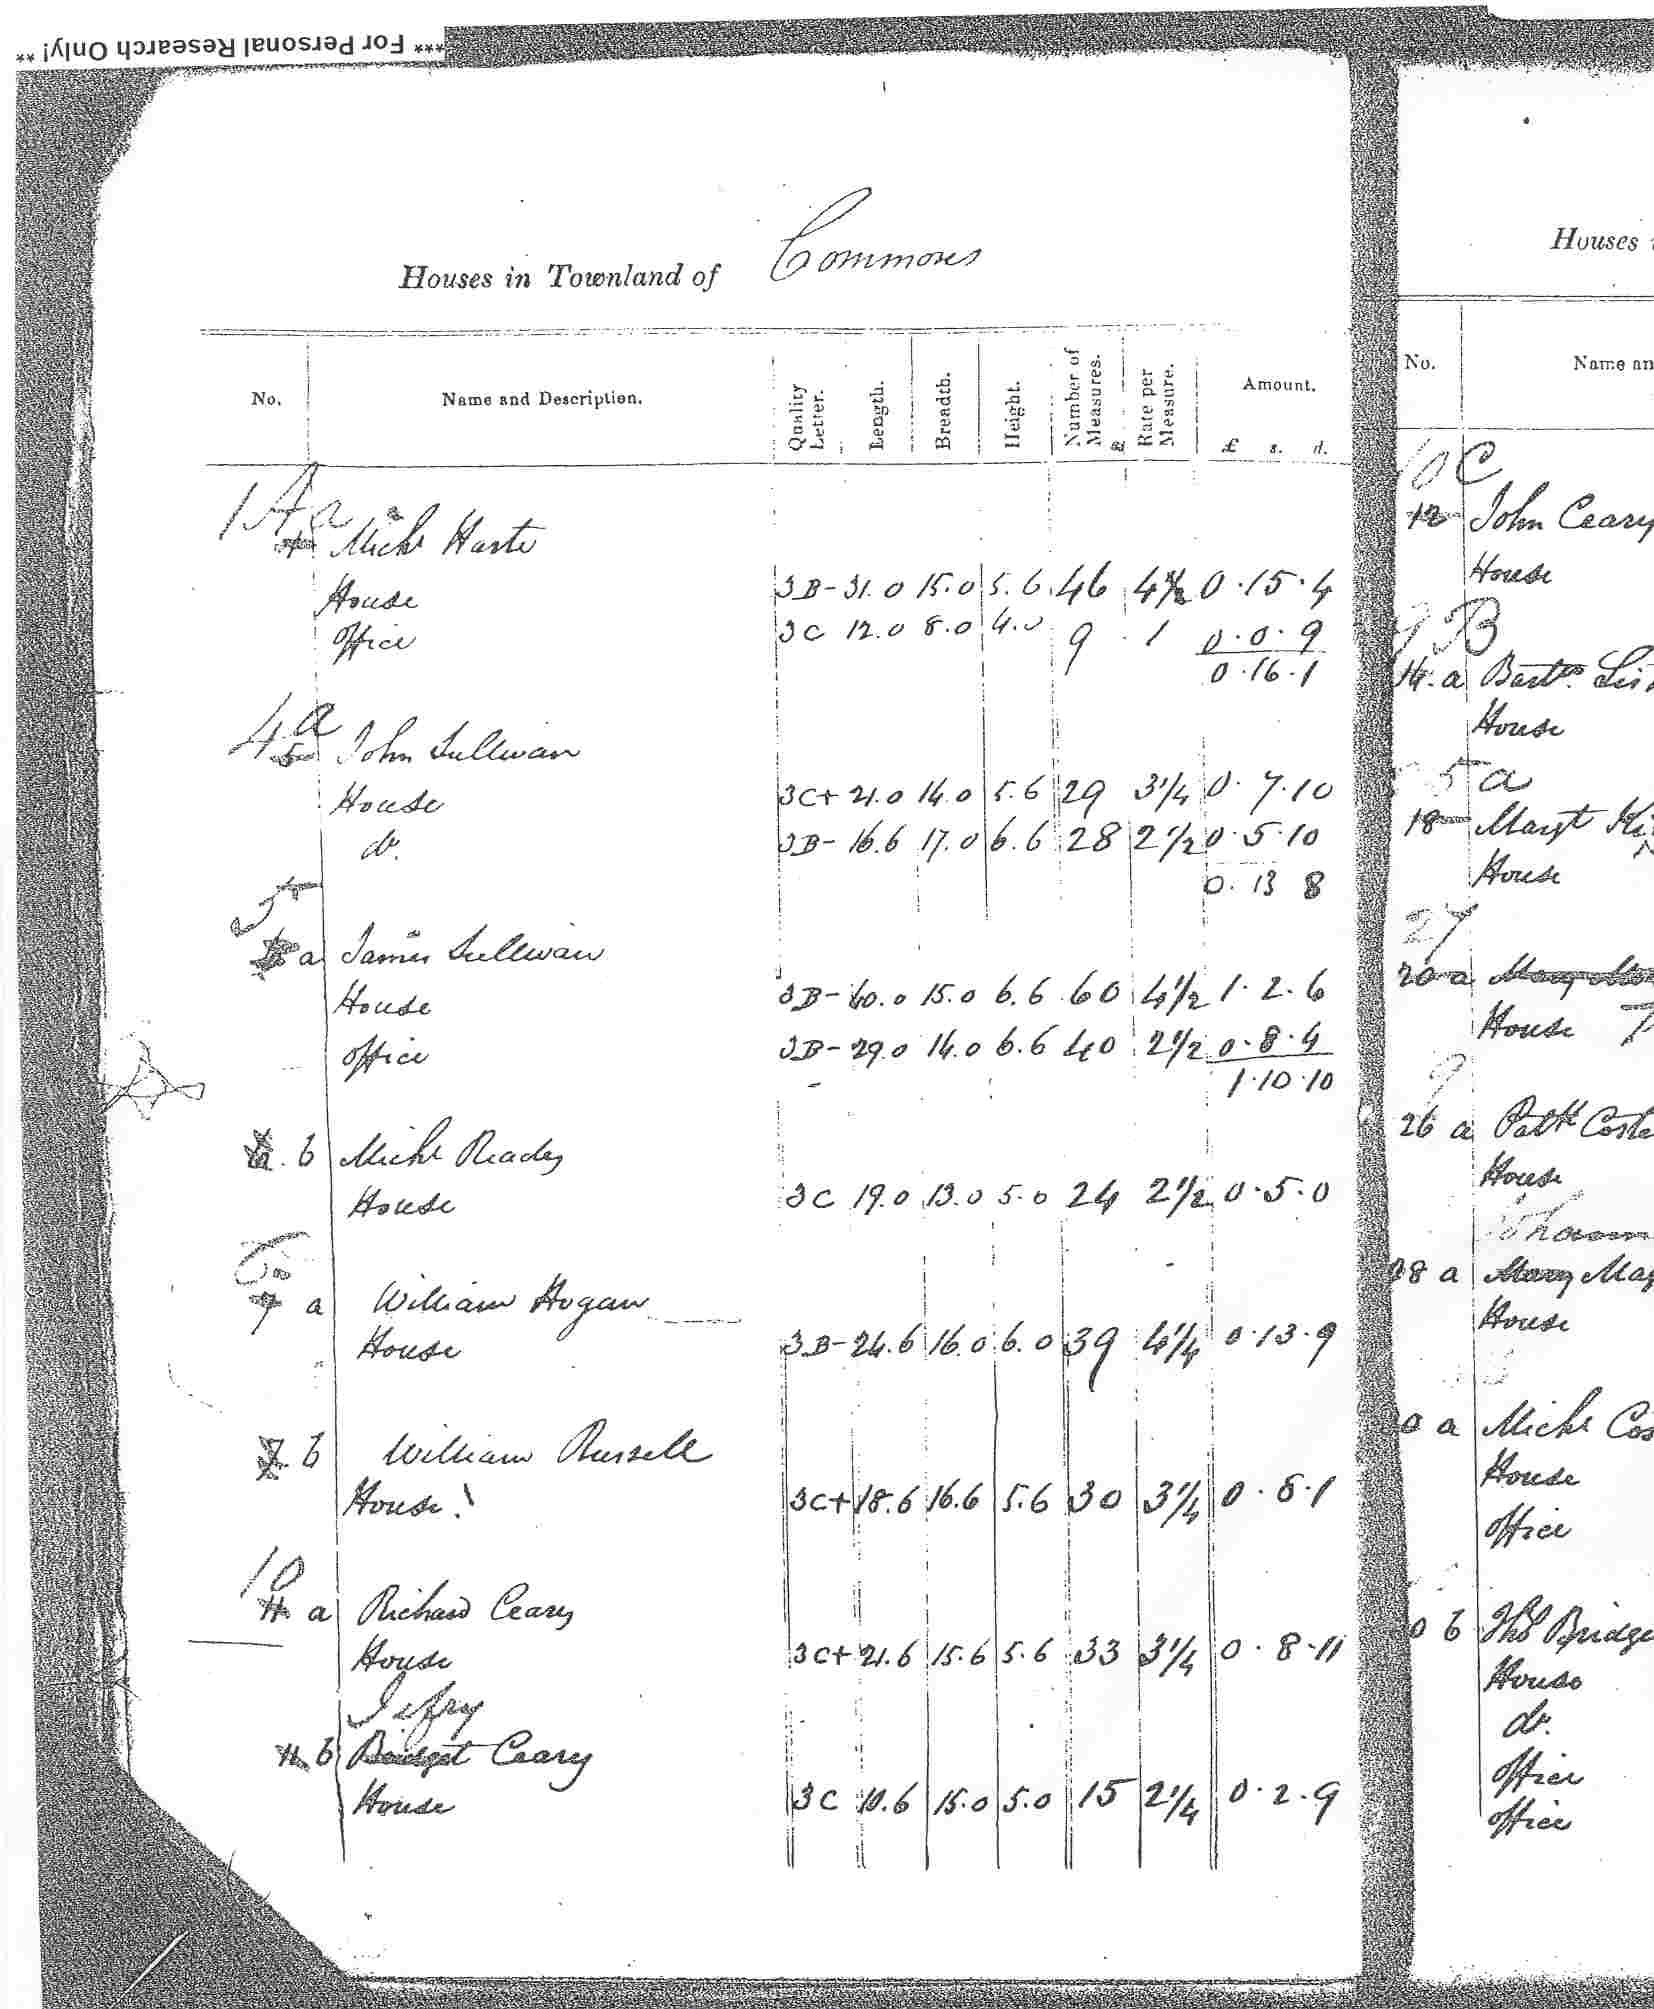 *** For Personal Research Only! **
Houses in Townland of Commons
No. Name and Description. Quality Letter. Length. Breadth. Height. Number of Measures. Rate per Measure. Amount.
£ s. d.
1 A a
Michl Harte
House 3B- 31.0 15.0 5.6 46 4 0.15.4
Office 3C 12.0 8.0 4.0 9 1 0.0.9
0.16.1
4 a
5 John Sullivan
House 3C+ 21.0 14.0 5.6 29 3 1/4 0.7.10
do. 3B- 16.6 17.0 6.6 28 2 1/2 0.5.10
0.13 8
5
a James Sullivan
House 3B- 60.0 15.0 6.6 60 4 1/2 1.2.6
Office 3B- 29.0 14.0 6.6 40 2 1/2 0.8.4
1.10.10
b Michl Ready
House 3C 19.0 13.0 5.0 24 2 1/2 0.5.0
6
7 a William Hogan
House 3B- 24.6 16.0 6.0 39 4 1/4 0.13.9
7. b William Russell
House 3C+ 18.6 16.6 5.6 30 3 1/4 0.8.1
10
11 a Richard Ceary
House 3C+ 21.6 15.6 5.6 33 3 1/4 0.8.11
Jefry
11 b Bridget Ceary
House 3C 10.6 15.0 5.0 15 2 1/4 0.2.9
Houses
No. Name an
10 C
12 John Ceary
House
9 B
14. a Bartw.
House
5 a
18 Margt
House
27
20 a Mary
House
9
26 a Patk Coste
House
28 a Mary
House
0 a Michl Cos
House
Office
0 b Thos Bridge
House
do.
Office
Office